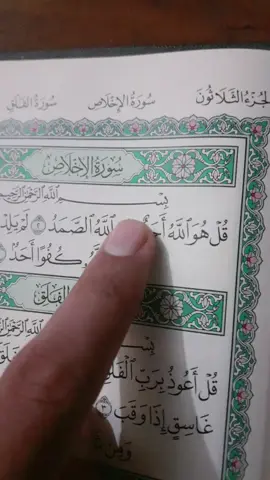 الجزء الثلاثون سورة الإخلاص سورة الفلق
سُورَةُ الإِخْلَاصِ
بِسْمِ ٱللَّهِ ٱلرَّحْمَٰنِ ٱلرَّحِيمِ
قُلْ هُوَ ٱللَّهُ ٱللَّهُ ٱلصَّمَدُ ٢ لَمْ يَلِدْ
كُفُوًا أَحَدٌ
الفَلَقِ
بِسْمِ ٱللَّهِ ٱلرَّحْمَٰنِ
قُلْ أَعُوذُ بِرَبِّ ٱلْفَلَقِ
غَاسِقٍ إِذَا وَقَبَ ٣
وَمِن